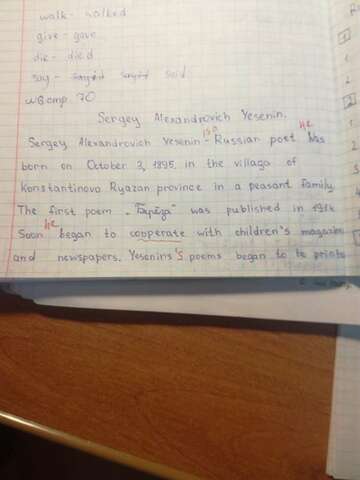 walk - walked
give - gave
die - died
say - said
WB cтр. 70
Sergey Alexandrovich Yesenin.
Sergey Alexandrovich Yesenin - Russian poet he was
born on October 3, 1895 in the villaga of
Konstantinovo Ryazan province in a peasant family.
The first poem „Берёза" was published in 1914
Soon he began to cooperate with children's magazine
and newspapers. Yesenin's poems began to be printe